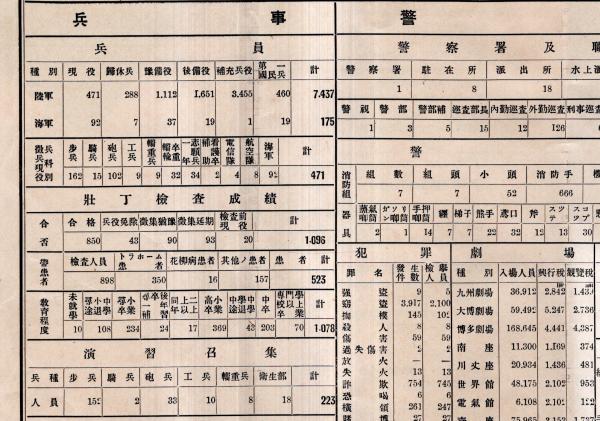 兵事
兵員
種別 現役 歸休兵 豫備役 後備役 補充兵役 第一國民兵 計
陸軍 471 288 1.112 1,651 3,455 460 7.437
海軍 92 7 37 19 1 19 175
徴兵兵科現役別 步兵 騎兵 砲兵 工兵 輜重兵 輜重輸卒 一年志願兵 補助看護卒 電信隊 航空隊 海軍 計
162 15 102 9 9 32 34 2 4 8 92 471
壯丁檢査成績
合否 合格 兵役免除 徴集猶豫 徴集延期 檢査前現役 計
850 43 90 93 20 1.096
帶患者 檢査人員 トラホーム患者 花柳病患者 其他ノ患者 患者計
898 350 16 157 523
教育程度 未就學 尋小中途退學 尋小卒業 後一年 同上二年以上 高小卒業 中學中退 中學卒 專門學校以上卒業 計
10 108 234 24 17 369 43 203 70 1.078
演習召集
兵種 步兵 騎兵 砲兵 工兵 輜重兵 衛生部 計
人員 152 2 33 10 8 18 223
警
警察署及
警察署 駐在所 派出所 水上
1 8 18
警視 警部 警部補 巡査部長 內勤巡査 外勤巡査 刑事巡査
1 3 5 15 12 126
警
消防組 組數 組頭 小頭 消防手
7 7 52 666
器具 蒸氣喞筒 ガソリン喞筒 手押喞筒 纒 梯子 熊手 鳶口 斧
2 1 14 7 7 22 32 12 13 30
犯罪
罪名 發生件數 檢擧人員
強盜 9 5
竊盜 3,917 2,100
掏摸 145 102
殺人 8 8
傷害 59 59
過失傷害 2 2
放火 — —
失火 13 13
詐欺 754 745
恐喝 6 6
橫領 261 247
賭博 27 27
劇場
種別 入場人員 興行稅 觀覽稅
九州劇場 36,912 2,842
大博劇場 59,492 5,247 2.736
博多劇場 168,645 4.441 4.387
南座 11.300 1,169 374
川丈座 20,934 1,436 481
世界館 48,175 2,102 953
電氣館 6,108 2,102
座 75,965